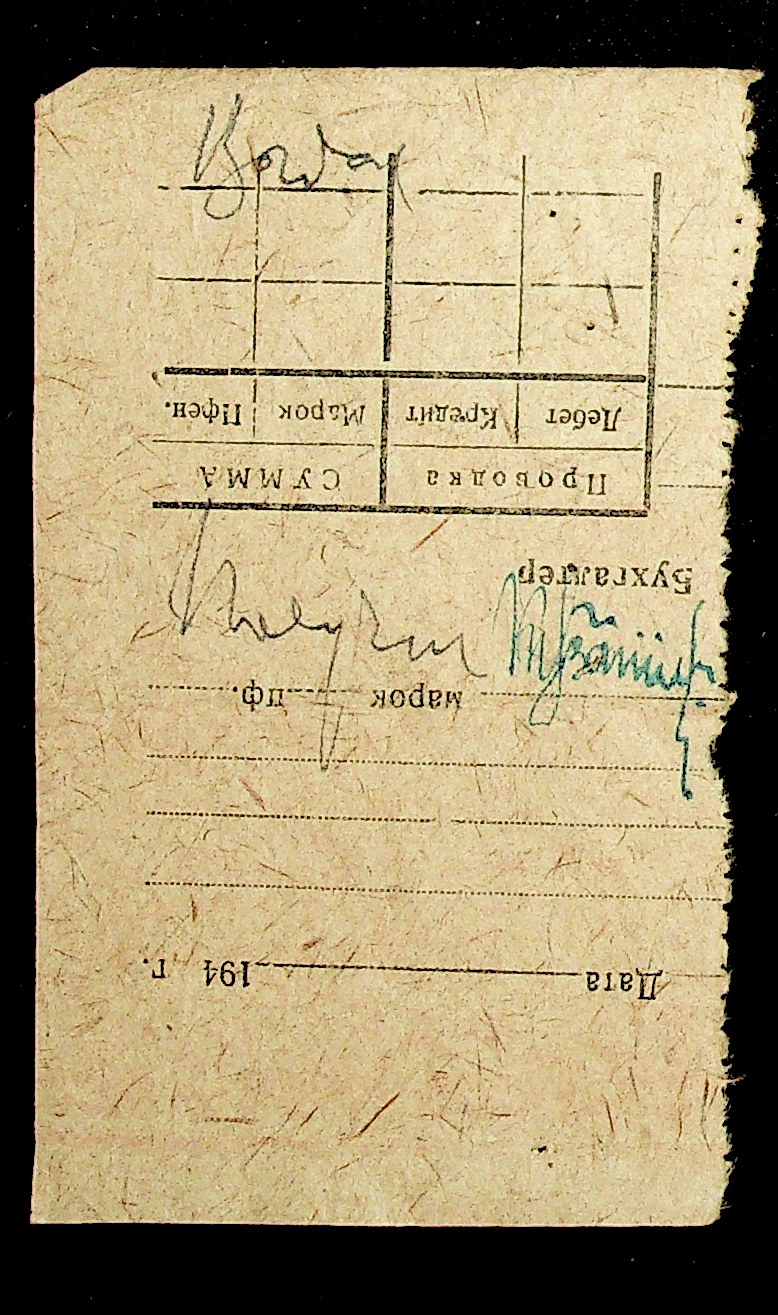 Дата 194 г.
марок пф.
Бухгалтер
Проводка СУММА
Дебет Кредит Марок Пфен.